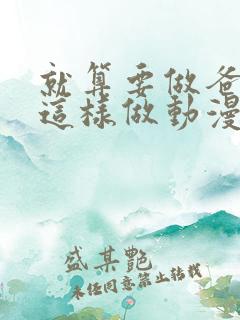 就算要做爸
這樣做動漫
盛某艷
未经同意禁止转载